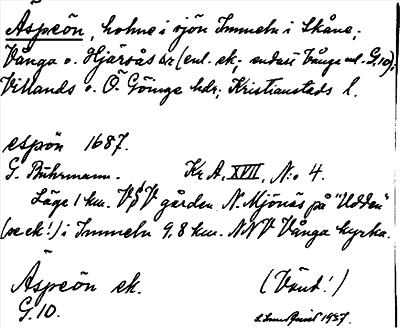 Äspeön, holme i sjön Immeln i Skåne;
Vånga o. Hjärsås sr (enl. ek.; endast Vånga enl. G.10);
Villands o. Ö. Göinge hdr; Kristianstads l.
espön 1687.
G. Buhrmann. Kr A, XVII, N:o 4.
Läge 1 km. VSV gården N. Mjönäs på "Udden"
(se ek!) i Immeln 9,8 km. NNV Vånga kyrka.
Äspeön ek. (Vänd!)
G.10. 1937